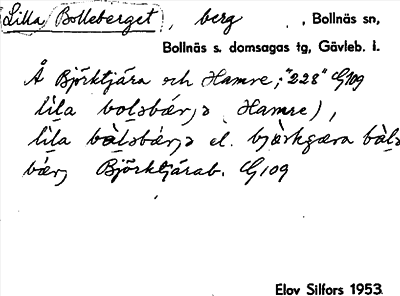 Lilla Bolleberget, berg, Bollnäs sn,
Bollnäs s. domsagas tg, Gävleb. l.
Å Björktjära och Hamre; "228" G109
li̱la bo̱lsbǽrjə (Hamre),
li̱la bàlsbǽrjə el. bjærkgæra bàls
bǽrj Björktjärab. G109
Elov Silfors 1953.